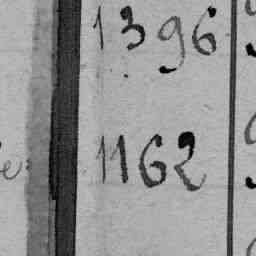 1396
1162